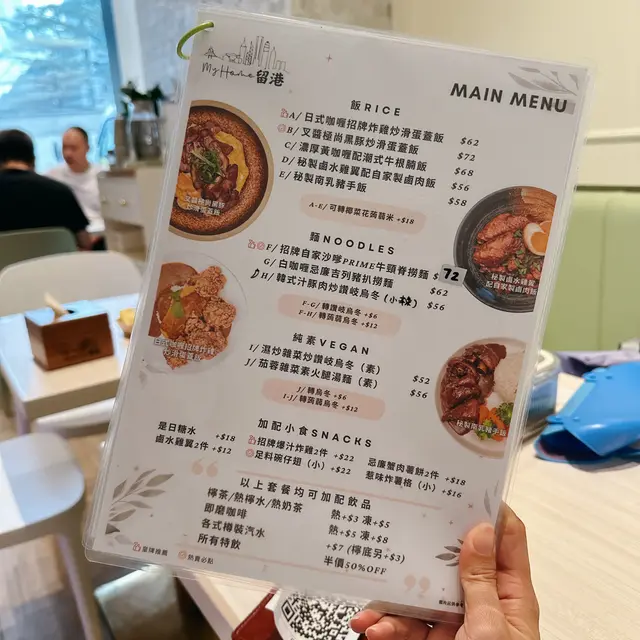 My Home 留港
MAIN MENU
飯 RICE
A/ 日式咖喱招牌炸雞炒滑蛋蓋飯 $62
B/ 叉醬極尚黑豚炒滑蛋蓋飯 $72
C/ 濃厚黃咖喱配潮式牛根腩飯 $68
D/ 秘製鹵水雞翼配自家製鹵肉飯 $56
E/ 秘製南乳豬手飯 $58
A-E/ 可轉椰菜花蒟蒻米 +$18
叉醬極尚黑豚
炒滑蛋蓋飯
麵 NOODLES
F/ 招牌自家沙嗲PRIME牛頸脊撈麵 $72
G/ 白咖喱忌廉吉列豬扒撈麵 $62
H/ 韓式汁豚肉炒讚岐烏冬(小辣) $56
F-G/ 轉讚岐烏冬 +$6
F-H/ 轉蒟蒻烏冬 +$12
秘製鹵水雞翼
配自家製鹵肉飯
日式咖喱招牌炸雞
炒滑蛋蓋飯
純素 VEGAN
I/ 濕炒雜菜炒讚岐烏冬(素) $52
J/ 茄蓉雜菜素火腿湯麵(素) $56
J/ 轉烏冬 +$6
I-J/ 轉蒟蒻烏冬 +$12
秘製南乳豬手飯
加配小食 SNACKS
是日糖水 +$18
鹵水雞翼2件 +$12
招牌爆汁炸雞2件 +$22
足料碗仔翅(小) +$22
忌廉蟹肉薯餅2件 +$18
惹味炸薯格(小) +$16
以上套餐均可加配飲品
檸茶/熱檸水/熱奶茶 熱+$3 凍+$5
即磨咖啡 熱+$5 凍+$8
各式樽裝汽水 +$7 (檸底另+$3)
所有特飲 半價50%OFF
皇牌推薦
熱賣必點